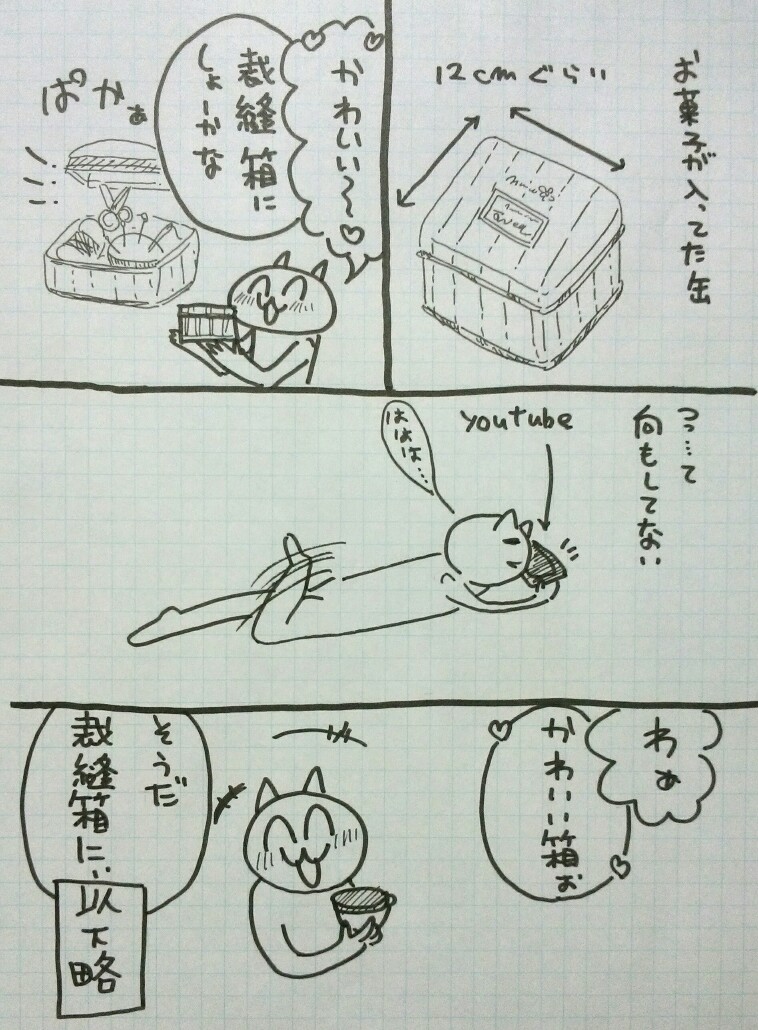 お菓子が入ってた缶
12cmぐらい
かわいい〜
裁縫箱に
しょーかな
ぱかぁ
っ…て
何もしてない
youtube
ははは…
わぁ
かわいい箱ぉ
そうだ
裁縫箱に…
以下略